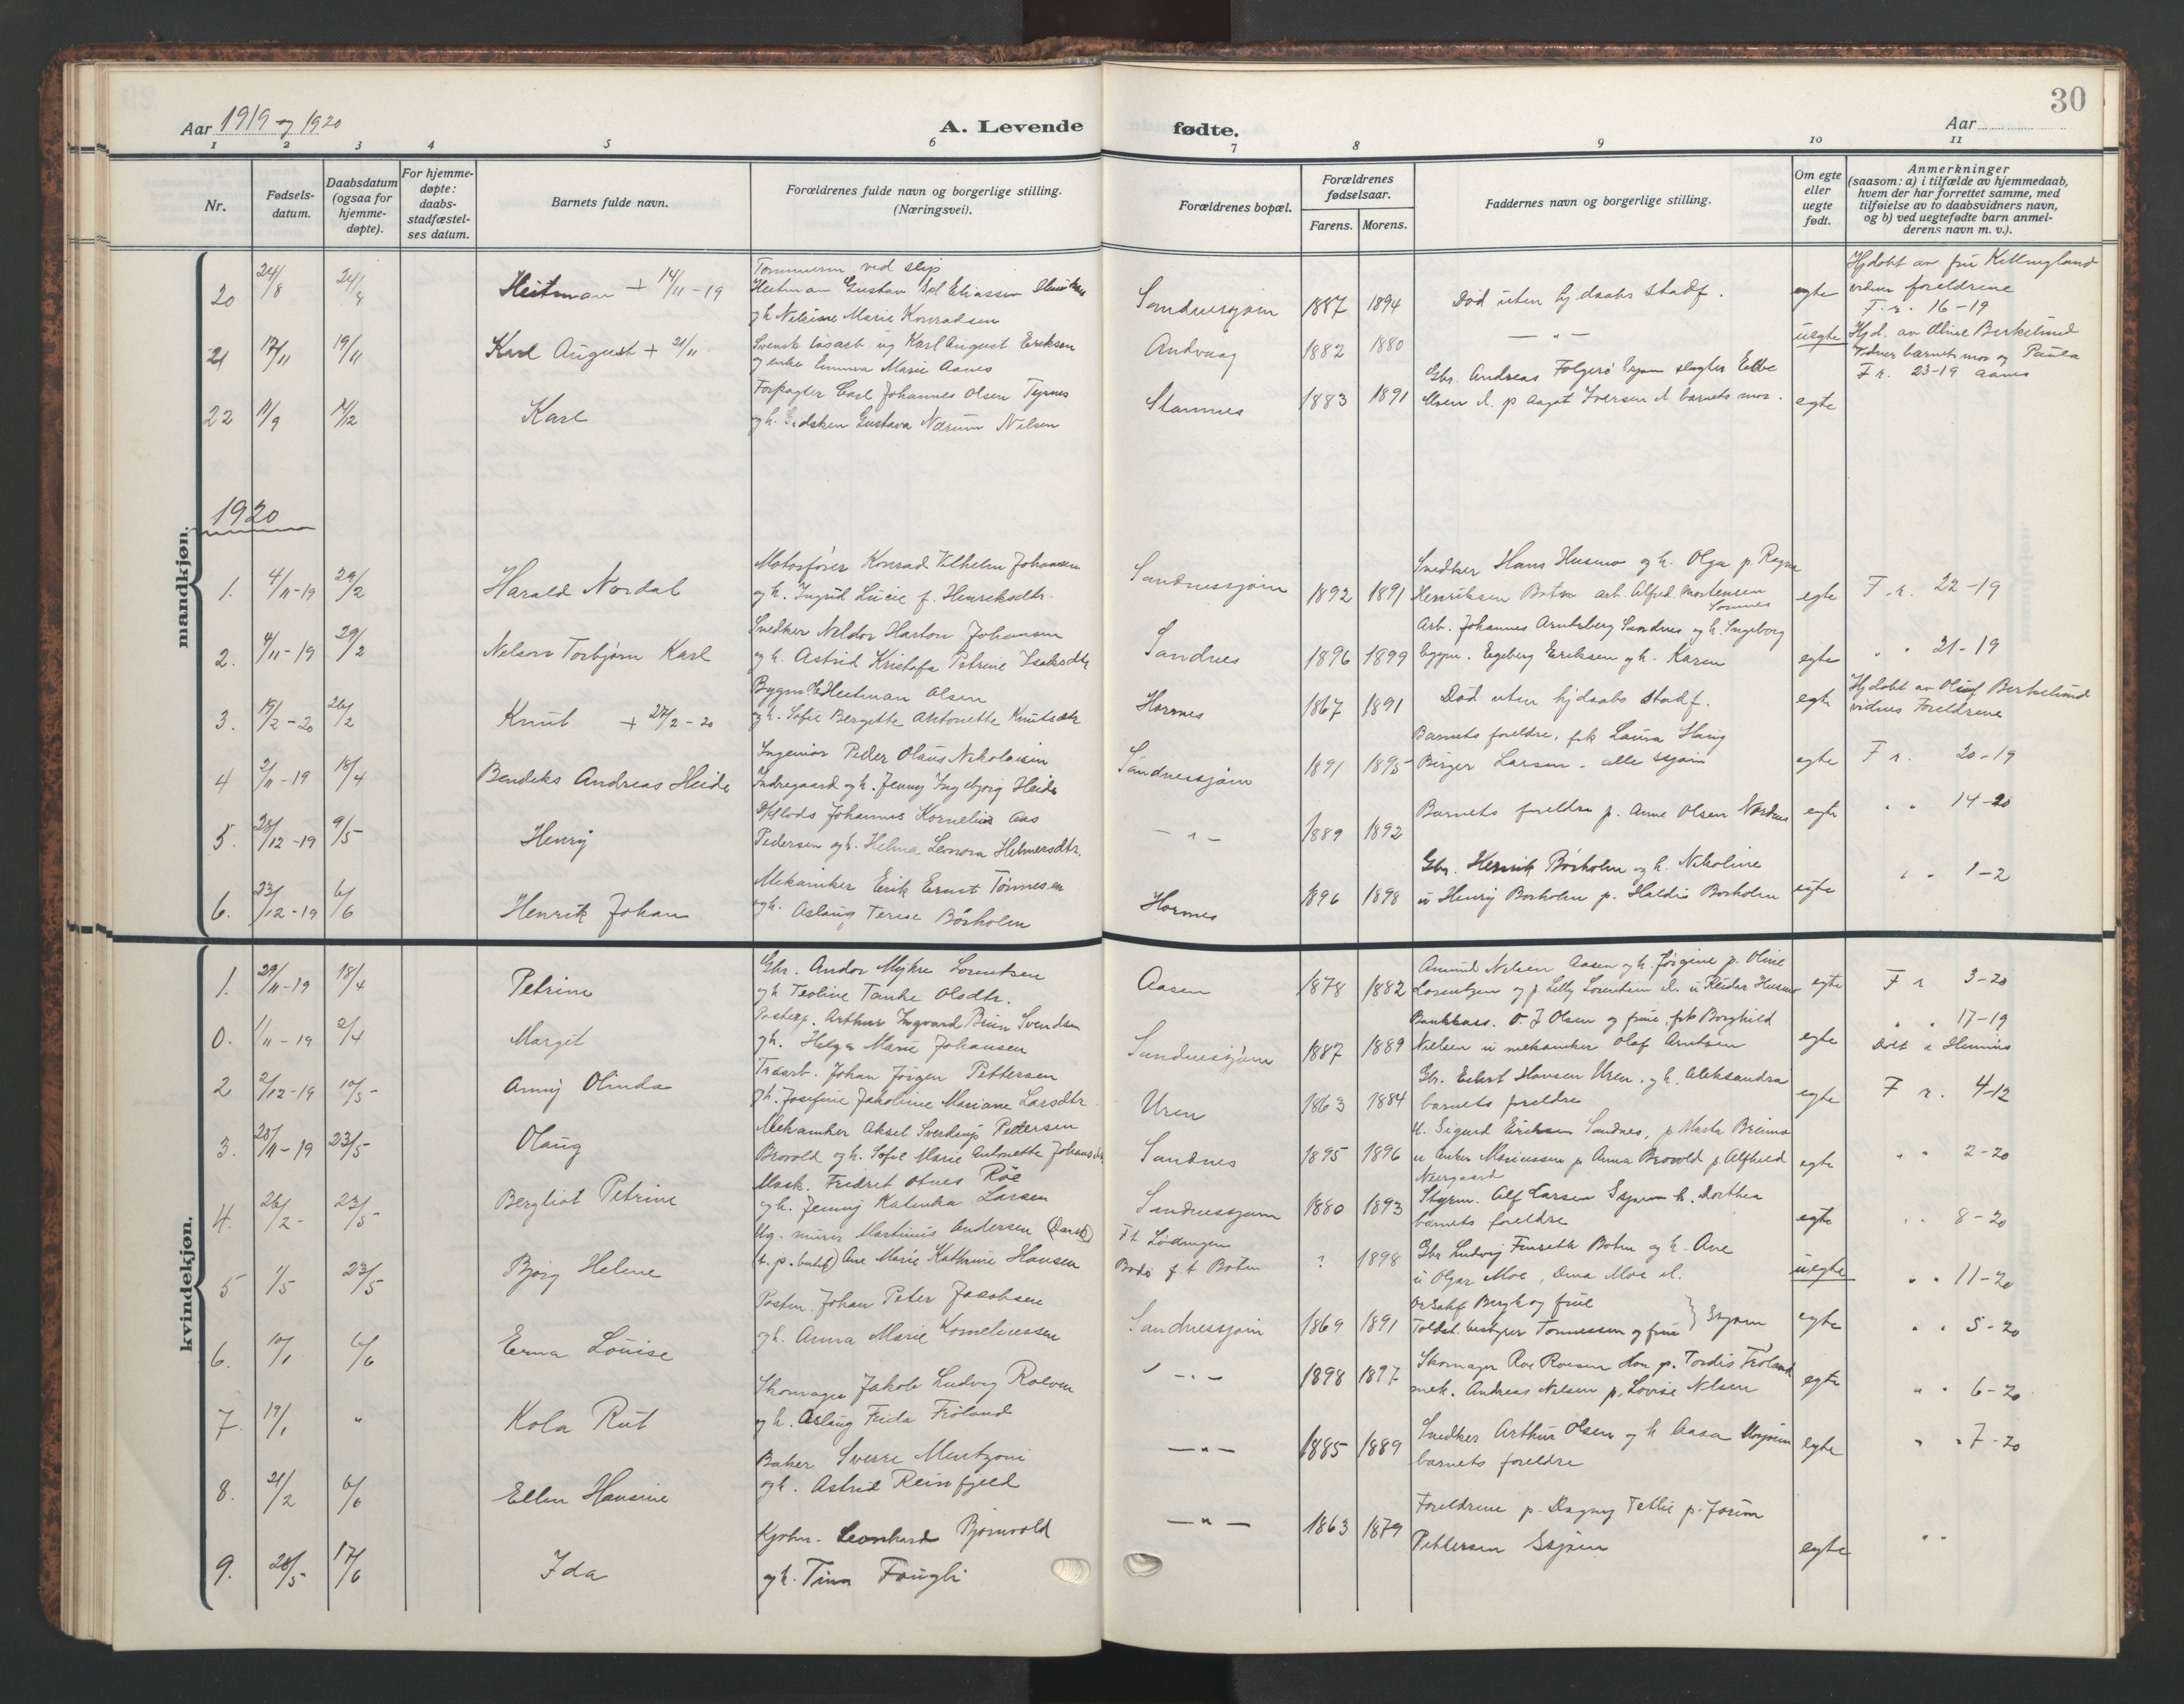 30
Aar 1919 og 1920
A. Levende fødte.
Aar
1 2 3 4 5 6 7 8 9 10 11
Nr.
Fødsels-
datum.
Daabsdatum
(ogsaa for
hjemme-
døpte).
For hjemme-
døpte:
daabs-
stadfæstel-
ses datum.
Barnets fulde navn.
Forældrenes fulde navn og borgerlige stilling.
(Næringsvei).
Forældrenes bopæl.
Forældrenes
fødselsaar.
Farens. Morens.
Faddernes navn og borgerlige stilling.
Om egte
eller
uegte
født.
Anmerkninger
(saasom: a) i tilfælde av hjemmedaab,
hvem der har forrettet samme, med
tilføielse av to daabsvidners navn,
og b) ved uegtefødte barn anmel-
derens navn m. v.).
mandkjøn.
20 24/8 24/8 Heitman + 14/11-19
Heitman Gustav Eliassen
og h. Marie Konradsen
Sandnessjøen 1887 1894 Død uten hj.daabs stadf. egte
vidner foreldrene
F. r. 16-19
21 17/11 19/11 Karl August + 21/11
Svensk løsarb. ug Karl August Eriksen
og enke Emma Marie Aanes
Andvaag 1882 1880 — " — uegte
Hjd. av Oline Berkelund
Vidner barnets mor og Paula
F r. 23-19 Aanes
22 11/9 14/12 Karl
Forpagter Carl Johannes Olsen Tyrnes
og h. Gustava Nærum Nilsen
Stamnes 1883 1891
Gbr. Andreas Folgerø slagter
Moen d. p Aagot Iversen d barnets mor. egte
1920
1. 4/11-19 29/2 Harald Nordal
Motorfører Konrad Vilhelm Johansen
og h. Ingrid Lucie f. Henriksdtr.
Sandnessjøen 1892 1891
Snedker Hans Husmo og h. Olga p. Ragna
Henriksen Botn arb. Alfred Mortensen egte F. r. 22-19
2. 4/11-19 29/2 Nelson Torbjørn Karl
Snedker Neldor Harton Johansen
og h. Astrid Kristofa Petrine Isaksdtr
Sandnes 1896 1899
Arb. Johannes Arntsberg Sandnes og h. Ingeborg
bygm. Egeberg Eriksen og h. Karen egte " " 21-19
3. 19/2-20 26/2 Knut + 27/2-20
Bygm Heitman Olsen
og h. Sofie Bergitte Antonette Knutsdtr
Hornes 1867 1891 Død uten hjdaabs stadf. egte
Hjdøbt av Oluf Berkelund
vidner Foreldrene
4 2/11-19 18/4 Bendeks Andreas Heide
Ingeniør Peder Olaus Nikolaisen
Indregaard og h. Jenny Ingebjørg Heide
Sandnessjøen 1891 1895
Barnets foreldre, frk Laura Haug
Birger Larsen - alle Ssjøen egte F r. 20-19
5. 28/12-19 9/5 Henry
Johannes Kornelius Aas
Pedersen og h. Helma Leonora Helmersdtr.
— " — 1889 1892
Barnets foreldre p. Anne Olsen Nordnes egte " " 14-20
6. 23/12-19 6/6 Henrik Johan
Mekaniker Erik Ernst Tønnesen
og h. Aslaug Terese Børholm
Hornes 1896 1898
Gbr. Henrik Børholm og h. Nikoline
u Henry Borholm p. Haldis Borholm egte " " 1-2
kvindekjøn.
1. 29/11-19 18/4 Petrine
Gbr. Andor Myhre Lorentsen
og h Teoline Tanke Olsdtr.
Aasen 1878 1882
Amund Nilsen Aasen og h. Jørgine p. Oline
Lorentzen og p. Lilly Lorentsen d. u Reidar Husmo egte F r 3-20
0. 1/11-19 2/4 Margit
Arthur Ingvard Brun Svendsen
og h. Helga Marie Johansen
Sandnessjøen 1887 1889
Bankkass. O. J Olsen og frue, frk Borghild
Nielsen u mekaniker Olaf Arntsen egte " " 17-19
Døbt i Hemnes
2 2/12-19 10/5 Anny Olinda
Johan Jørgen Pettersen
og h. Josefine Jakoline Mariane Larsdtr
Uren 1863 1884
Gbr. Edvert Hansen Uren, og h. Aleksandra
barnets foreldre egte F r. 4-12
3. 28/11-19 23/5 Olaug
Mekaniker Aksel Sverdrup Pettersen
Brovold og h. Sofie Marie Antonette
Sandnes 1895 1896
U. Sigurd Eriksen Sandnes, p Marta Breimo
u Anker Mariussen p Anna Brovold p. Alfhild
Neergaard egte " " 2-20
4. 26/2- 23/5 Bergliot Petrine
Mask. Fridret Røe
og h. Jenny Katinka Larsen
Sandnessjøen 1880 1893
Styrm. Alf Larsen Ssjøen h. Dorthea
barnets foreldre egte " " 8-20
5 1/5 23/5 Bjørg Helene
Ug. murer Martinus Andersen (Dansk)
Ane Marie Kathrine Hansen
F t Lødingen
Bodø f t Botn ? 1898
Gbr Ludvig Finseth Botn og h. Ane
u Olgar Moe, Oma Moe d. uegte " " 11-20
6. 10/1 6/6 Erna Louise
Postm. Johan Peter Jacobsen
og h. Anna Marie Korneliussen
Sandnessjøen 1869 1891
Bergh og frue
Toldst. bestyrer Tønnessen og frue } Ssjøen egte " " 5-20
7 19/1 " Kola Rut
Skomager Jakob Ludvig Rolven
og h. Aslaug Frida Frøland
— " — 1898 1897
Skomager p. Tordis Frøland
mek. Andreas Nilsen p. Lovise Nilsen egte " " 6-20
8. 21/2 6/6 Ellen Hansine
Baker Sverre Mentzoni
og h. Astrid Reinfjeld
— " — 1885 1889
Snedker Arthur Olsen og h Aasa
barnets foreldre egte " " 7-20
9. 28/5 17/6 Ida
Kjøbm. Leonhard Bjørnvold
og h. Tina Fougli
— " — 1863 1879
Foreldrene p. Dagny Tetlie p.
Pettersen Ssjøen egte " "